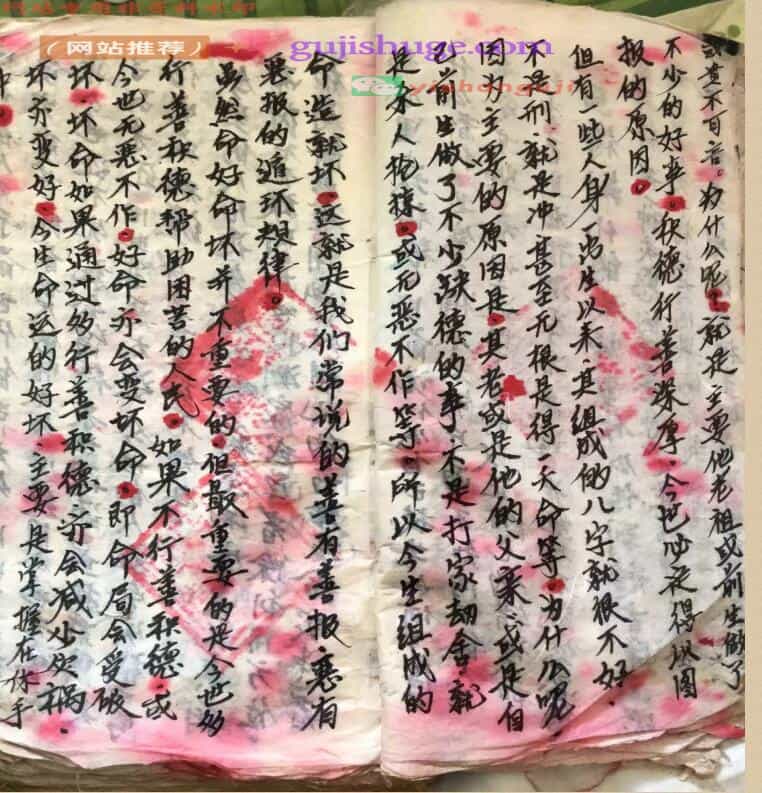 （网站推荐）
gujishuge.com
或贵不可言。为什么呢。就是主要他老祖或前生做了
不少的好事。积德行善深厚。今也必定得以因
报的原因。
但有一些人身一出生以来。其组成的八字就很不好。
不是刑就是冲甚至无根是得一夭命等。为什么呢
因为主要的原因是。其老或是他的父亲。或是自
己前生做了不少缺德的事。不是打家劫舍就
是杀人抢掠。或无恶不作等。所以今生组成的
命造就坏。这就是我们常说的善有善报。恶有
恶报的道环规律。
虽然命好命坏并不重要的。但最重要的是今世多
行善积德帮助困苦的人民。如果不行善积德。或
今也无恶不作。好命亦会变坏命。即命局会受破
坏。坏命如果通过多行善积德亦会减少灾祸。
坏亦变好。今生命运的好坏。主要是掌握在你手
中。